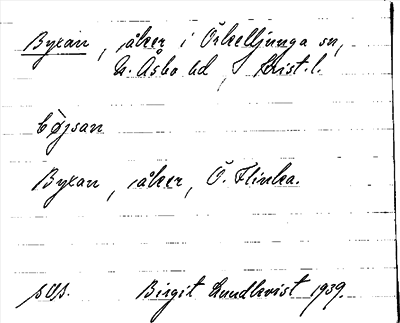 Byxan, åker i Örkelljunga sn,
N. Åsbo hd, Krist. l.
Byxan, åker, Ö. Flinka.
Birgit Lundkvist 1939.